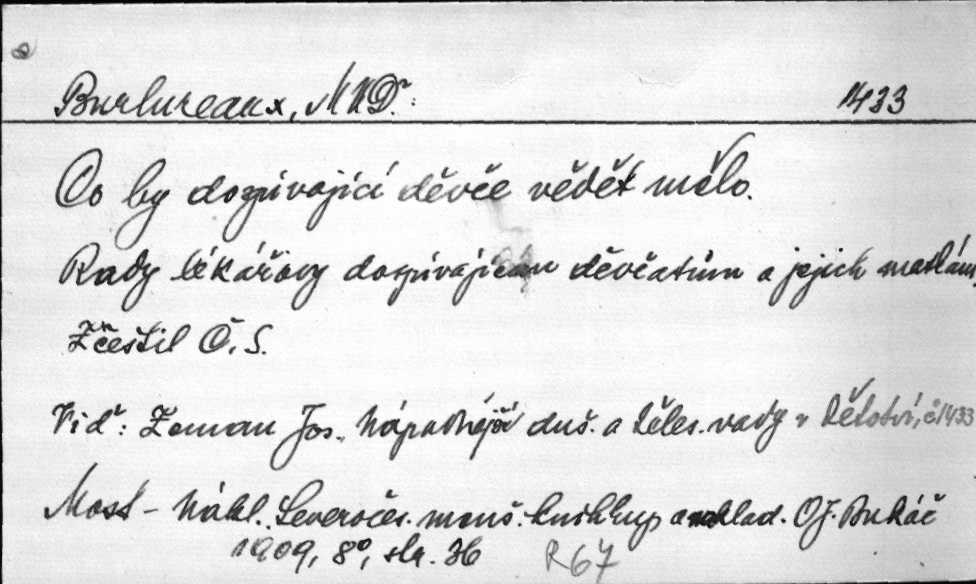 Burlureaux, MUDr. 1433
Co by dospívající děvče vědět mělo.
Rady lékařovy dospívajícím děvčatům a jejich matkám,
Zčeštil Č. S.
Viď: Zeman Jos., Nápadnější duš. a těles. vady v dětství, č 1433
Most - Nákl. Severočes. menš. knihkup. a naklad. Of. Bukáč
1909, 8°, str. 36 R67